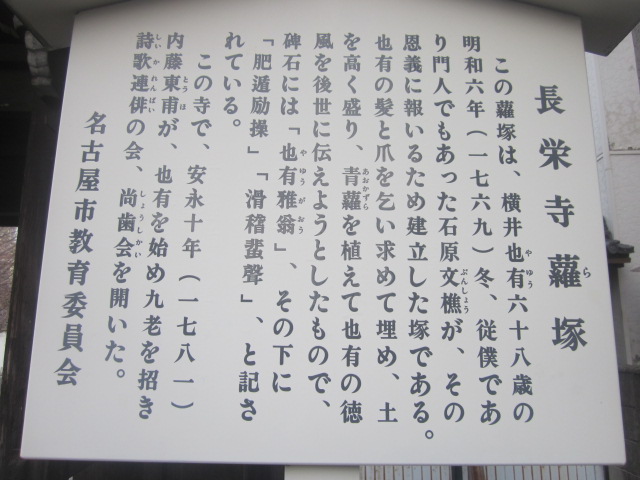 長栄寺蘿塚
この蘿塚は、横井也有六十八歳の
明和六年（一七六九）冬、従僕であ
り門人でもあった石原文樵が、その
恩義に報いるため建立した塚である。
也有の髪と爪を乞い求めて埋め、土
を高く盛り、青蘿を植えて也有の徳
風を後世に伝えようとしたもので、
碑石には「也有雅翁」、その下に
「肥遁励操」「滑稽蜚聲」、と記さ
れている。
この寺で、安永十年（一七八一）
内藤東甫が、也有を始め九老を招き
詩歌連俳の会、尚歯会を開いた。
名古屋市教育委員会